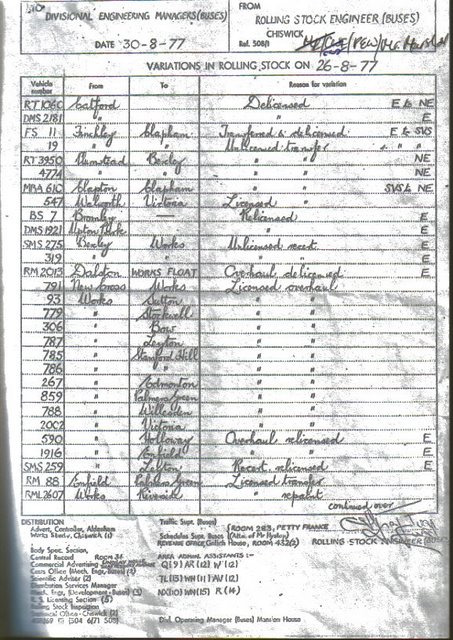 TO
DIVISIONAL ENGINEERING MANAGERS (BUSES)
DATE 30-8-77
FROM
ROLLING STOCK ENGINEER (BUSES)
CHISWICK
Ref. 508/1
VARIATIONS IN ROLLING STOCK ON 26-8-77
Vehicle number From To Reason for variation
RT1060 Catford Delicensed E to NE
DMS 2181 " " E
FS 11 Finchley Clapham Transferred & delicensed E to SVS
19 " " Unlicensed transfer " " "
RT3950 Plumstead Bexley " " NE
4774 " " " " NE
MBA 610 Clapton Clapham " " SVS to NE
547 Walworth Victoria Licensed "
BS 7 Bromley — Relicensed E
DMS1921 Upton Park " E
SMS 275 Bexley Works Unlicensed recert. E
319 " " " " E
RM2013 Dalston WORKS FLOAT Overhaul delicensed E
791 New Cross Works Licensed overhaul
93 Works Sutton " "
779 " Stockwell " "
306 " Bow " "
787 " Leyton " "
785 " Stamford Hill " "
786 " " " "
267 " Edmonton " "
859 " Palmers Green " "
788 " Willesden " "
2002 " Victoria " "
590 " Holloway Overhaul relicensed E
1916 " Enfield " " E
SMS 259 " Leyton Recert. relicensed E
RM 88 Enfield Palmers Green Licensed transfer
RML2607 Works Riverside " repaint
continued over
DISTRIBUTION
Advert. Controller, Aldenham
Works Study, Chiswick (1)
Body Spec. Section,
Central Record Room 31
Commercial Advertising
Costs Office (Mech. Engr. Buses)
Scientific Adviser (2)
Distribution Services Manager
Mech. Engr. (Development - Buses)
R. S. Licensing Section (5)
Rolling Stock Inspection
Technical Office - Chiswick (2)
Traffic Supt. (Buses) ROOM 283, PETTY FRANCE
Schedules Supt. (Buses)
REVENUE OFFICE, Griffith House, ROOM 432(2)
ROLLING STOCK ENGINEER (BUSES)
AREA ADMIN. ASSISTANTS :-
Q(9) AR (12) W (12)
TL(15) WN (11) FW (12)
NX(10) WN (15) R (14)
Divl. Operating Manager (Buses) Mansion House